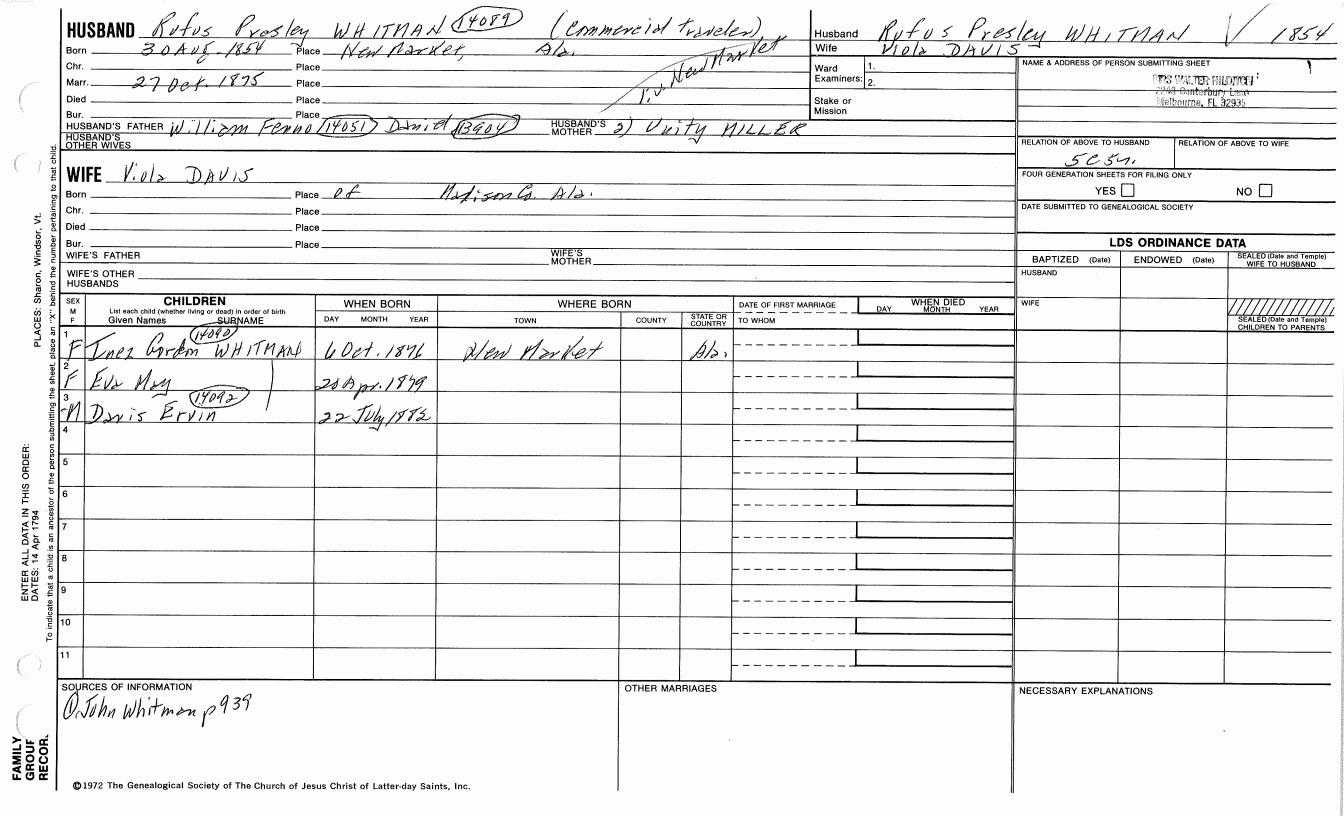 HUSBAND Rufus Presley WHITMAN 14089 (Commercial Traveler)
Born 30 Aug. 1854 Place New Market, Ala.
Chr. Place
Marr. 27 Oct. 1875 Place
Died Place
Bur. Place
New Market
HUSBAND'S FATHER William Fenno 14051 Daniel 13904 HUSBAND'S MOTHER 2) Unity MILLER
HUSBAND'S OTHER WIVES
WIFE Viola DAVIS
Born Place of Madison Co. Ala.
Chr. Place
Died Place
Bur. Place
WIFE'S FATHER WIFE'S MOTHER
WIFE'S OTHER HUSBANDS
Husband Rufus Presley WHITMAN 1854
Wife Viola DAVIS
Ward Examiners: 1.
2.
Stake or Mission
NAME & ADDRESS OF PERSON SUBMITTING SHEET
WALTER
Canterbury Lane
Melbourne, FL 32935
RELATION OF ABOVE TO HUSBAND RELATION OF ABOVE TO WIFE
FOUR GENERATION SHEETS FOR FILING ONLY
YES NO
DATE SUBMITTED TO GENEALOGICAL SOCIETY
LDS ORDINANCE DATA
BAPTIZED (Date) ENDOWED (Date) SEALED (Date and Temple) WIFE TO HUSBAND
HUSBAND
WIFE
SEALED (Date and Temple) CHILDREN TO PARENTS
SEX M F
CHILDREN
List each child (whether living or dead) in order of birth
Given Names SURNAME
WHEN BORN
DAY MONTH YEAR
WHERE BORN
TOWN COUNTY STATE OR COUNTRY
DATE OF FIRST MARRIAGE
TO WHOM
WHEN DIED
DAY MONTH YEAR
1 F Inez Gordon WHITMAN 14090 6 Oct. 1876 New Market Ala.
2 F Eva May 20 Apr. 1879
3 M Davis Ervin 14092 22 July 1882
4
5
6
7
8
9
10
11
SOURCES OF INFORMATION
① John Whitman p 939
OTHER MARRIAGES
NECESSARY EXPLANATIONS
©1972 The Genealogical Society of The Church of Jesus Christ of Latter-day Saints, Inc.
PLACES: Sharon, Windsor, Vt.
ENTER ALL DATA IN THIS ORDER:
DATES: 14 Apr 1794
To indicate that a child is an ancestor of the person submitting the sheet, place an "X" behind the number pertaining to that child.
FAMILY
GROUP
RECOR.